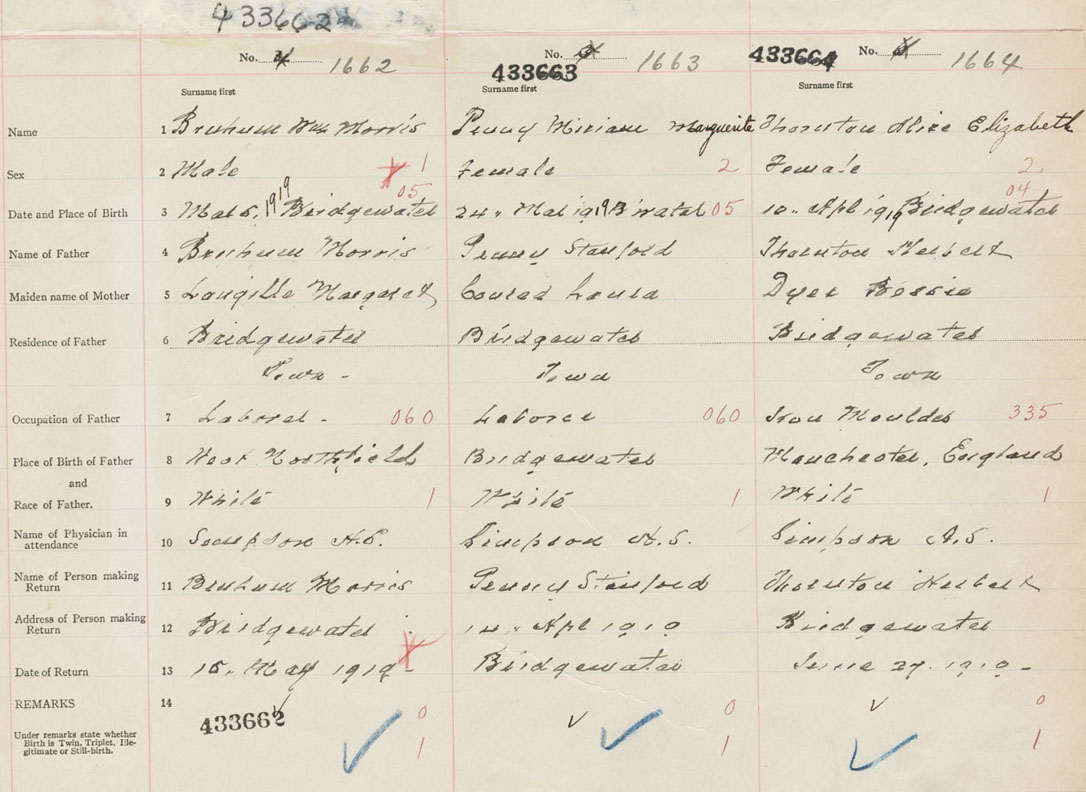 433662
No. 1662 No. 1663 433664 No. 1664
433663
Surname first Surname first Surname first
Name 1 Wm Morris Penny Miriam Marguerite Thornton Alice Elizabeth
Sex 2 Male 1 Female 2 Female 2
05 04
Date and Place of Birth 3 Mar 5, 1919 Bridgewater 24" Mar 1919 B'water 05 10" Apl 1919 Bridgewater
Name of Father 4 Morris Penny Stanford Thornton Herbert
Maiden name of Mother 5 Langille Margaret Conrad Laura Dyer Bessie
Residence of Father 6 Bridgewater Bridgewater Bridgewater
Town - Town Town
Occupation of Father 7 Laborer - 060 Laborer 060 Iron Moulder 335
Place of Birth of Father 8 West Northfield Bridgewater Manchester, England
and
Race of Father. 9 White 1 White 1 White 1
Name of Physician in
attendance 10 Simpson A.S. Simpson A.S. Simpson A.S.
Name of Person making
Return 11 Morris Penny Stanford Thornton Herbert
Address of Person making
Return 12 Bridgewater 14" Apl 1919 Bridgewater
Date of Return 13 15. May 1919 - Bridgewater June 27. 1919 -
REMARKS 14 0 0 0
433662
Under remarks state whether
Birth is Twin, Triplet, Ille-
gitimate or Still-birth. 1 1 1